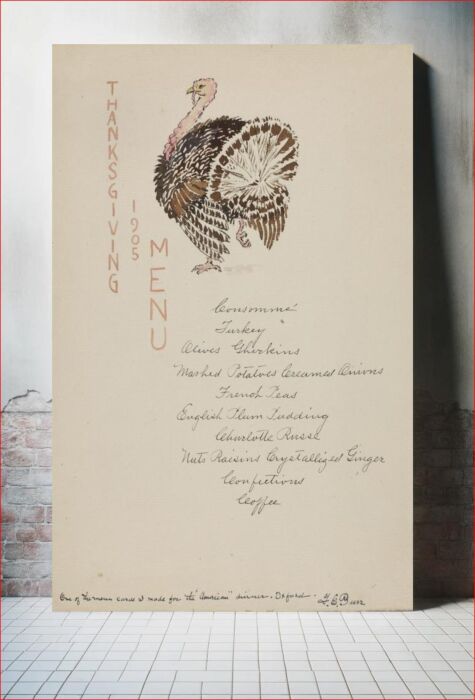 THANKSGIVING
1905
MENU
Consommé
Turkey
Olives Gherkins
Mashed Potatoes Creamed Onions
French Peas
English Plum Pudding
Charlotte Russe
Nuts Raisins Crystallized Ginger
Confections
Coffee
One of the menu cards I made for the "American" dinner. Oxford.